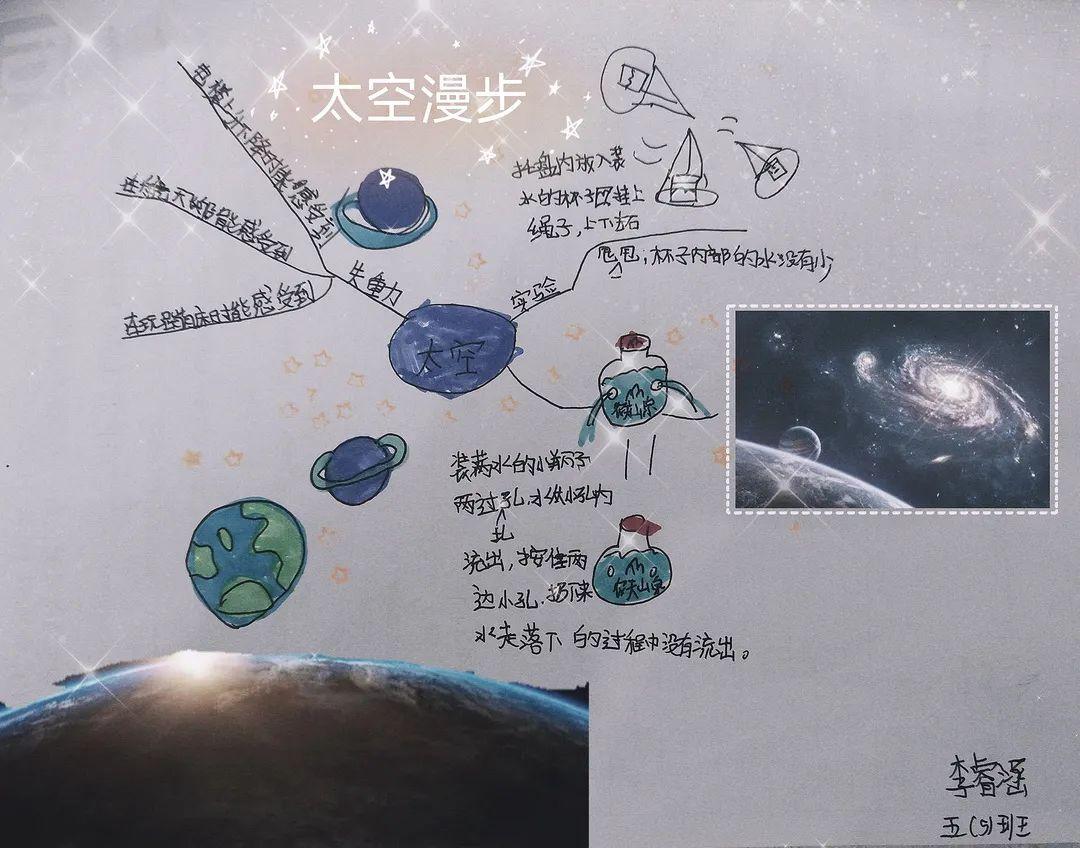 太空漫步
电梯上升下降时能感受到
在 能感受到
在玩 床时能感受到
失重力
太空
实验
托盘内放入装
水的杯子 挂上
绳子，上下左右
甩甩，杯子内部的水没有少
农夫山泉
装满水的小瓶子
两边扎孔，水从小孔内
流出，按住两
边小孔，扔下来
农夫山泉
水走落下的过程中没有流出。
李睿涵
五(5)班